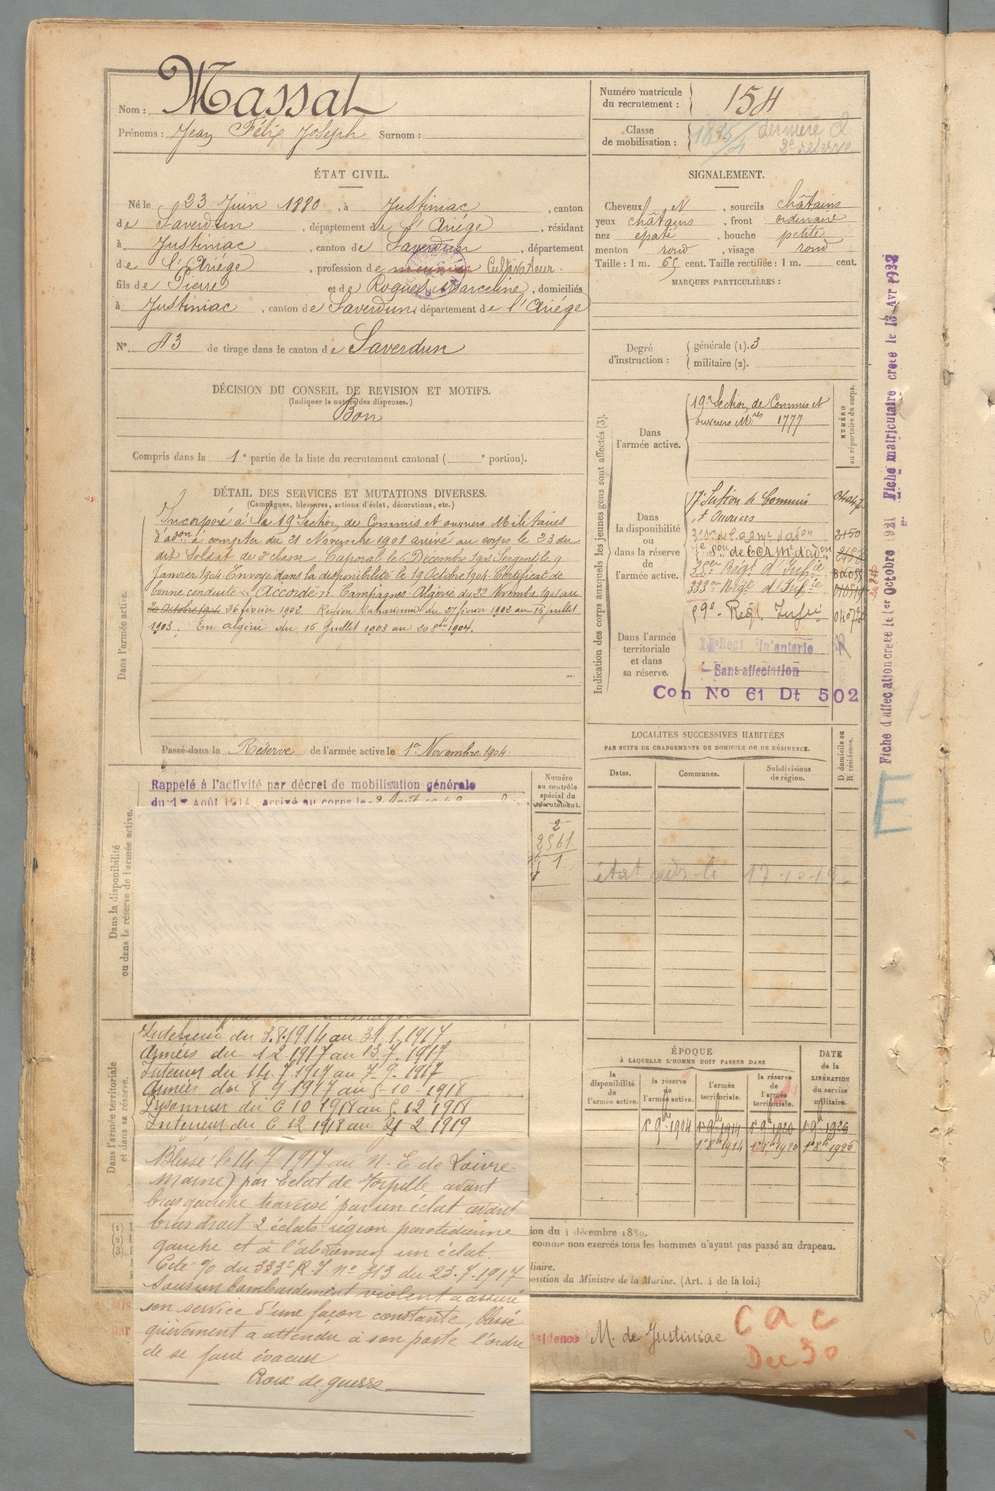 Nom : Massat
Prénoms : Jean Félix Joseph Surnom :
Numéro matricule du recrutement : 154
Classe de mobilisation :
ÉTAT CIVIL.
Né le 23 Juin 1880, à Justiniac, canton
de Saverdun, département de l'Ariége, résidant
à Justiniac, canton de Saverdun, département
de l'Ariége, profession de meunier Cultivateur.
fils de Pierre et de Roques Marceline, domiciliés
à Justiniac, canton de Saverdun, département de l'Ariége
N° 43 de tirage dans le canton de Saverdun
SIGNALEMENT.
Cheveux N, sourcils châtains
yeux châtains, front ordinaire
nez épaté, bouche petite
menton rond, visage rond
Taille : 1 m. 65 cent. Taille rectifiée : 1 m. cent.
MARQUES PARTICULIÈRES :
Degré d'instruction : générale (1). 3
militaire (2).
DÉCISION DU CONSEIL DE REVISION ET MOTIFS.
(Indiquer la nature des dispenses.)
Bon
Compris dans la 1e partie de la liste du recrutement cantonal ( e portion).
DÉTAIL DES SERVICES ET MUTATIONS DIVERSES.
(Campagnes, blessures, actions d'éclat, décorations, etc.)
Dans l'armée active.
Incorporé à la 19e Section de Commis et ouvriers Militaires
d'adon à compter du 21 Novembre 1901 arrivé au corps le 23 du
dit Soldat de 2e classe Caporal le 6 Décembre 1902 Sergent le 9
Janvier 1904 Envoyé dans la disponibilité le 19 Octobre 1904 Certificat de
bonne conduite "Accordé". Campagnes Algérie du 22 Novembre 1901 au
20 Octobre 1904 26 février 1902 Région Saharienne du 27 février 1902 au 15 juillet
1903. En Algérie du 16 juillet 1903 au 20 8bre 1904.
Passé dans la Réserve de l'armée active le 1er Novembre 1904.
Indication des corps auxquels les jeunes gens sont affectés (3).
Dans l'armée active.
19e Section de Commis et
ouvriers Mres 1777
NUMÉRO au répertoire du corps.
Dans la disponibilité ou dans la réserve de l'armée active.
17e Section de Commis
et Ouvriers
333eme Régt d'Infie
59e Regt Infie
Dans l'armée territoriale et dans sa réserve.
Sans affectation
Con No 61 Dt 502
LOCALITES SUCCESSIVES HABITÉES
PAR SUITE DE CHANGEMENTS DE DOMICILE OU DE RÉSIDENCE.
Dates. Communes. Subdivisions de région. D domicile ou R résidence.
17-10-19
Rappelé à l'activité par décret de mobilisation générale
du 1er Août 1914, arrivé au corps le
Numéro au contrôle spécial du recrutement.
2
2561
1
Dans la disponibilité ou dans la réserve de l'armée active.
Dans l'armée territoriale et dans sa réserve.
Intérieur du 3.8.1914 au 31.1.1917
Armées du 1 2 1917 au 13.7.1917
Intérieur du 14.7.1917 au 7.9.1917
Armées du 8 9 1917 au 5-10-1918
Prisonnier du 6 10 1918 au 5 12 1918
Intérieur du 6 12 1918 au 21 2 1919
Blessé le 14 7 1917 au N. E de Loivre
Marne) par Eclat de torpille avant
bras gauche traversé par un éclat avant
bras droit 2 éclats région parotidienne
gauche et à l'abdomen un éclat
Cité % du 333e R.I n° 413 du 23.7.1917
Sous un bombardement violent a assuré
son service d'une façon constante, blessé
grièvement a attendu à son poste l'ordre
de se faire évacuer
Croix de guerre
ÉPOQUE
À LAQUELLE L'HOMME DOIT PASSER DANS
la disponibilité de l'armée active. la réserve de l'armée active. l'armée territoriale. la réserve de l'armée territoriale.
DATE de la LIBÉRATION du service militaire.
1er 9bre 1904 1er 9bre 1914 1er 9bre 1920 1er 9bre 1926
1er 8bre 1914 1er 8bre 1920 1er 8bre 1926
comme non exercés tous les hommes n'ayant pas passé au drapeau.
position du Ministre de la Marine. (Art. 4 de la loi.)
M. de Justiniac
cac
Dec 30
Fiche d'affectation créée le 1er Octobre 1931 Fiche matriculaire créée le 13 Avr 1932
E